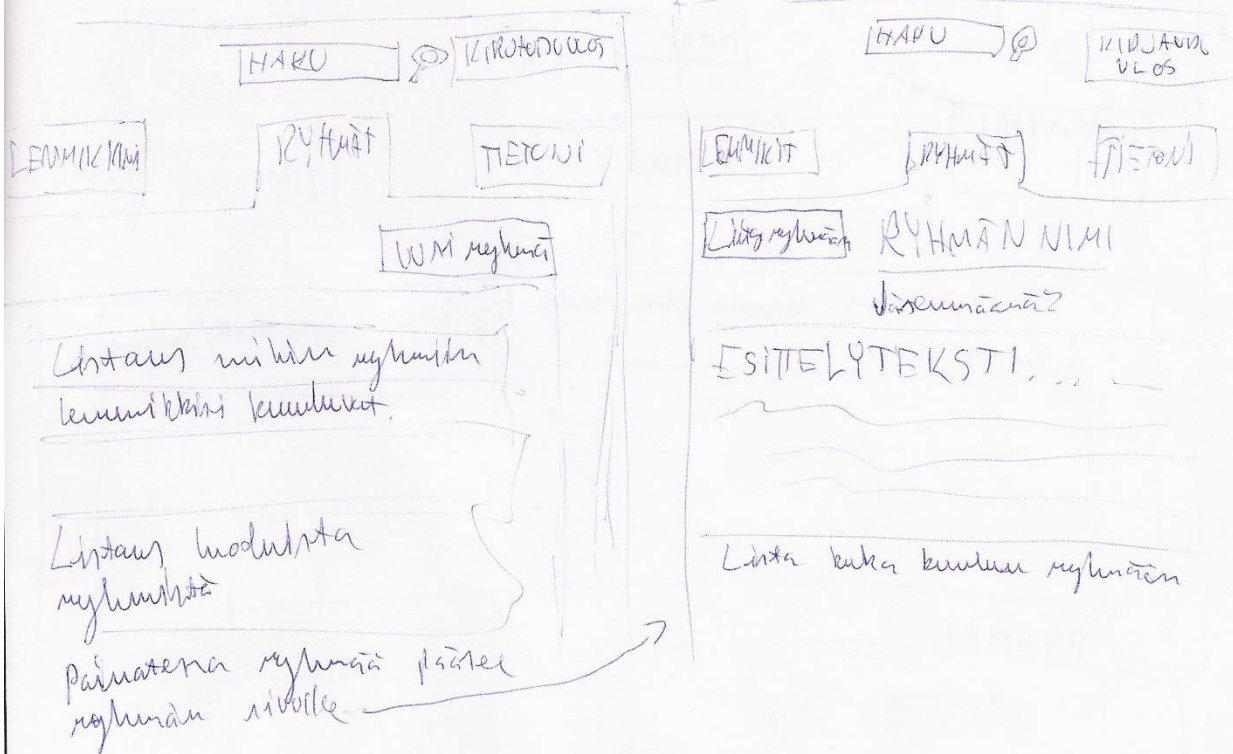 HAKU
KIRJAUDU ULOS
LEMMIKKINI
RYHMÄT
TIETONI
UUSI ryhmä
Listaus mihin ryhmiin
lemmikkini kuuluvat.
Listaus luoduista
ryhmistä
Painatessa ryhmää pääsee
ryhmän sivuille
HAKU
KIRJAUDU
ULOS
LEMMIKIT
RYHMÄT
TIETONI
Liity ryhmään
RYHMÄN NIMI
Jäsenmäärä?
ESITTELYTEKSTI....
Lista kuka kuuluu ryhmään